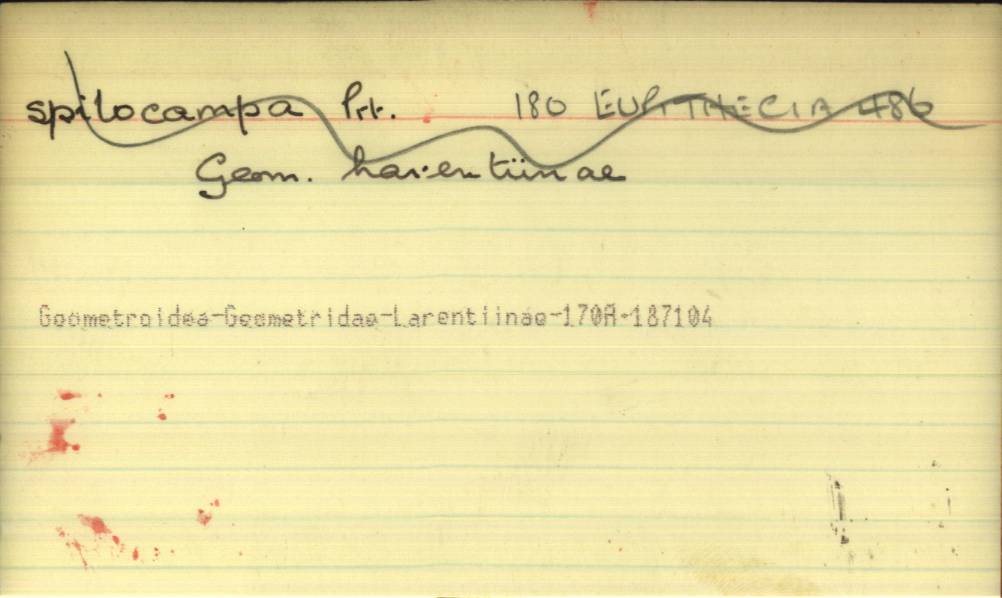 spilocampa Prt. 180 EUPITHECIA 486
Geom. Larentiinae
Geometroidea-Geometridae-Larentiinae-170A-187104